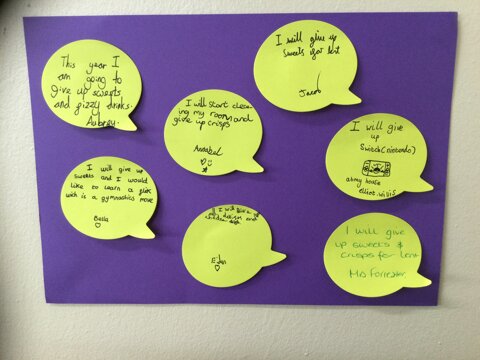 This year I
am going to
give up sweets
and fizzy drinks.
Aubrey.
I will give up
sweets for lent
Jacob
I will start clean
ing my room and
give up crisps
Annabel
I will give
up
Switch(nintendo)
at my house
elliot.willis
I will give up
sweets and I would
like to learn a flick
wich is a gymnastics move
Bella
I will give up
and
I will give
up sweets &
crisps for lent
Mrs Forrester